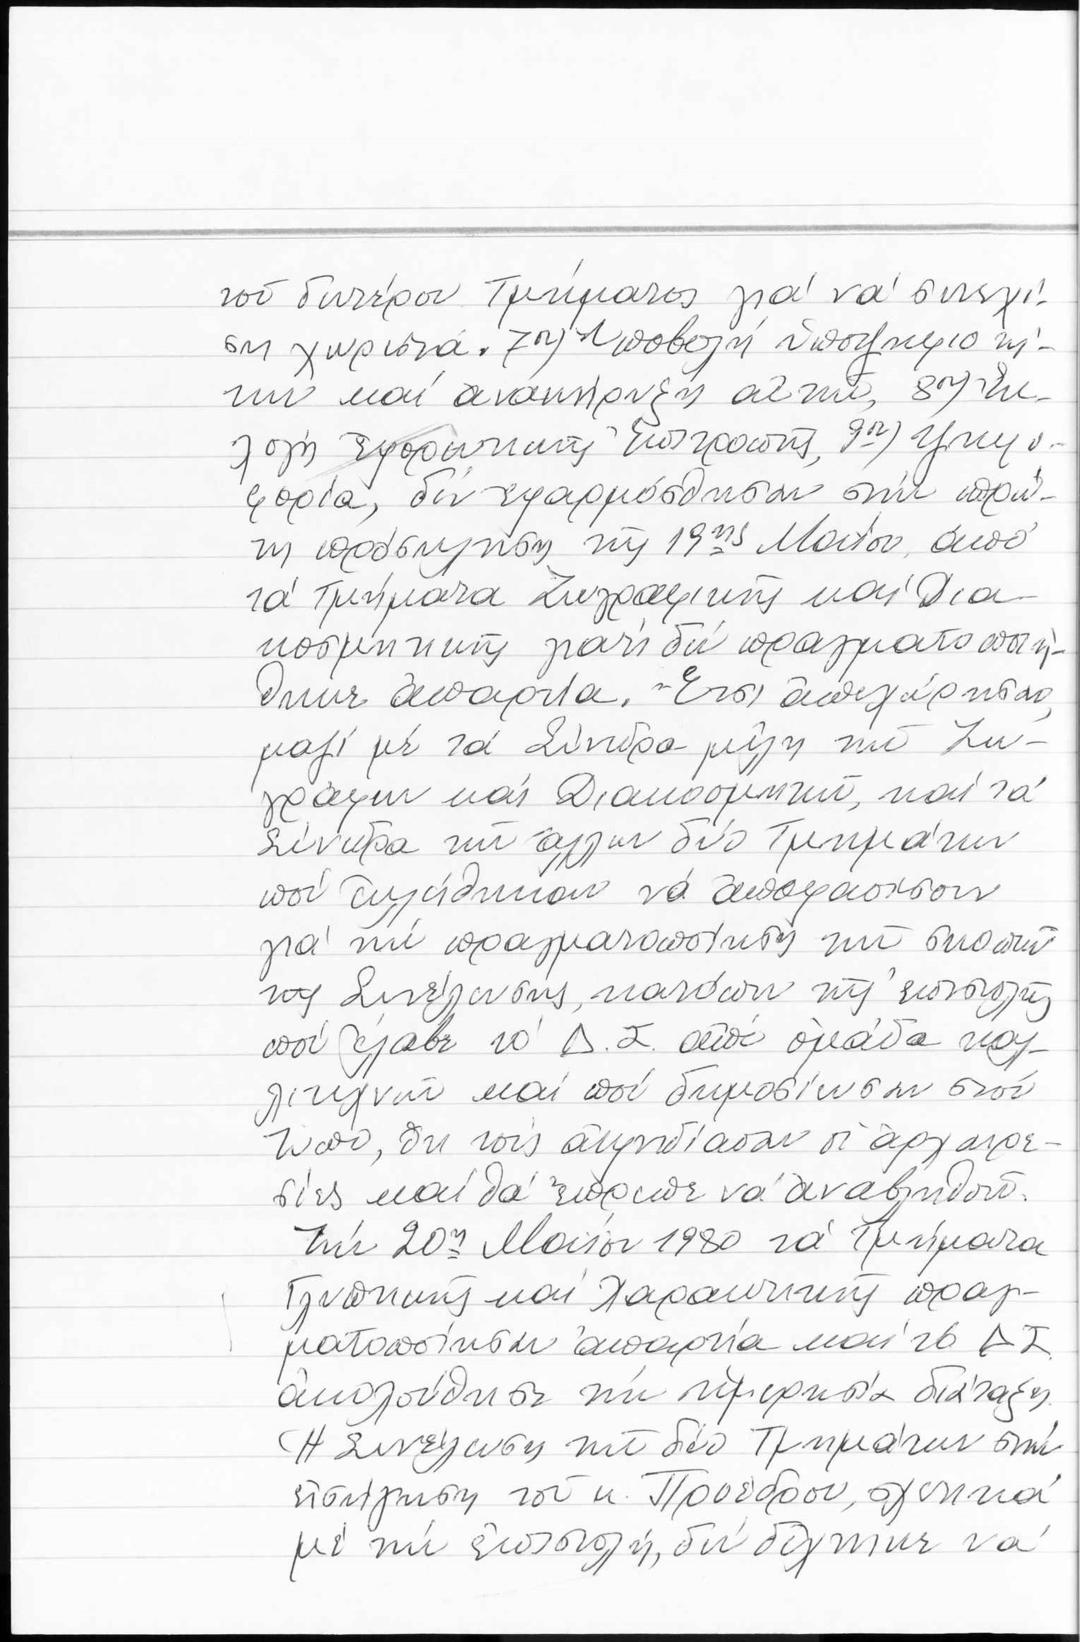 τοῦ δευτέρου Τμήματος γιά νά συνεχί-
ση χωριστά. 7ον) Ὑποβολή ὑποψηφιοτή-
των καί ἀνακήρυξη αὐτῶν, 8ον) Ἐκ-
λογή Ἐφορευτικῆς Ἐπιτροπῆς, 9ον) Ψηφο-
φορία, δέν ἐφαρμόσθησαν στήν πρώ-
τη πρόσκληση τῆς 19ης Μαΐου ἀπό
τά Τμήματα Ζωγραφικῆς καί Δια-
κοσμητικῆς γιατί δέν πραγματοποιή-
θηκε ἀπαρτία. Ἔτσι ἀπεχώρησαν,
μαζί μέ τά Σύνεδρα μέλη τῶν Ζω-
γράφων καί Διακοσμητῶν, καί τά
Σύνεδρα τῶν ἄλλων δύο Τμημάτων
πού ἐκλέχθηκαν νά ἀποφασίσουν
γιά τήν πραγματοποίηση τῶν σκοπῶν
τῆς Συνέλευσης, κατόπιν τῆς ἐπιστολῆς
πού ἔλαβε τό Δ.Σ. ἀπό ὁμάδα καλ-
λιτεχνῶν καί πού δημοσίευσαν στόν
Τύπο, ὅτι τούς αἰφνιδίασαν οἱ ἀρχαιρε-
σίες καί θά ἔπρεπε νά ἀναβληθοῦν.
Τήν 20η Μαΐου 1980 τά Τμήματα
Γλυπτικῆς καί Χαρακτικῆς πραγ-
ματοποίησαν ἀπαρτία καί τό Δ.Σ.
ἀκολούθησε τήν ἡμερησία διάταξη.
Ἡ Συνέλευση τῶν δύο Τμημάτων στήν
εἰσήγηση τοῦ κ. Προέδρου, σχετικά
μέ τήν ἐπιστολή, δέν δέχτηκε νά